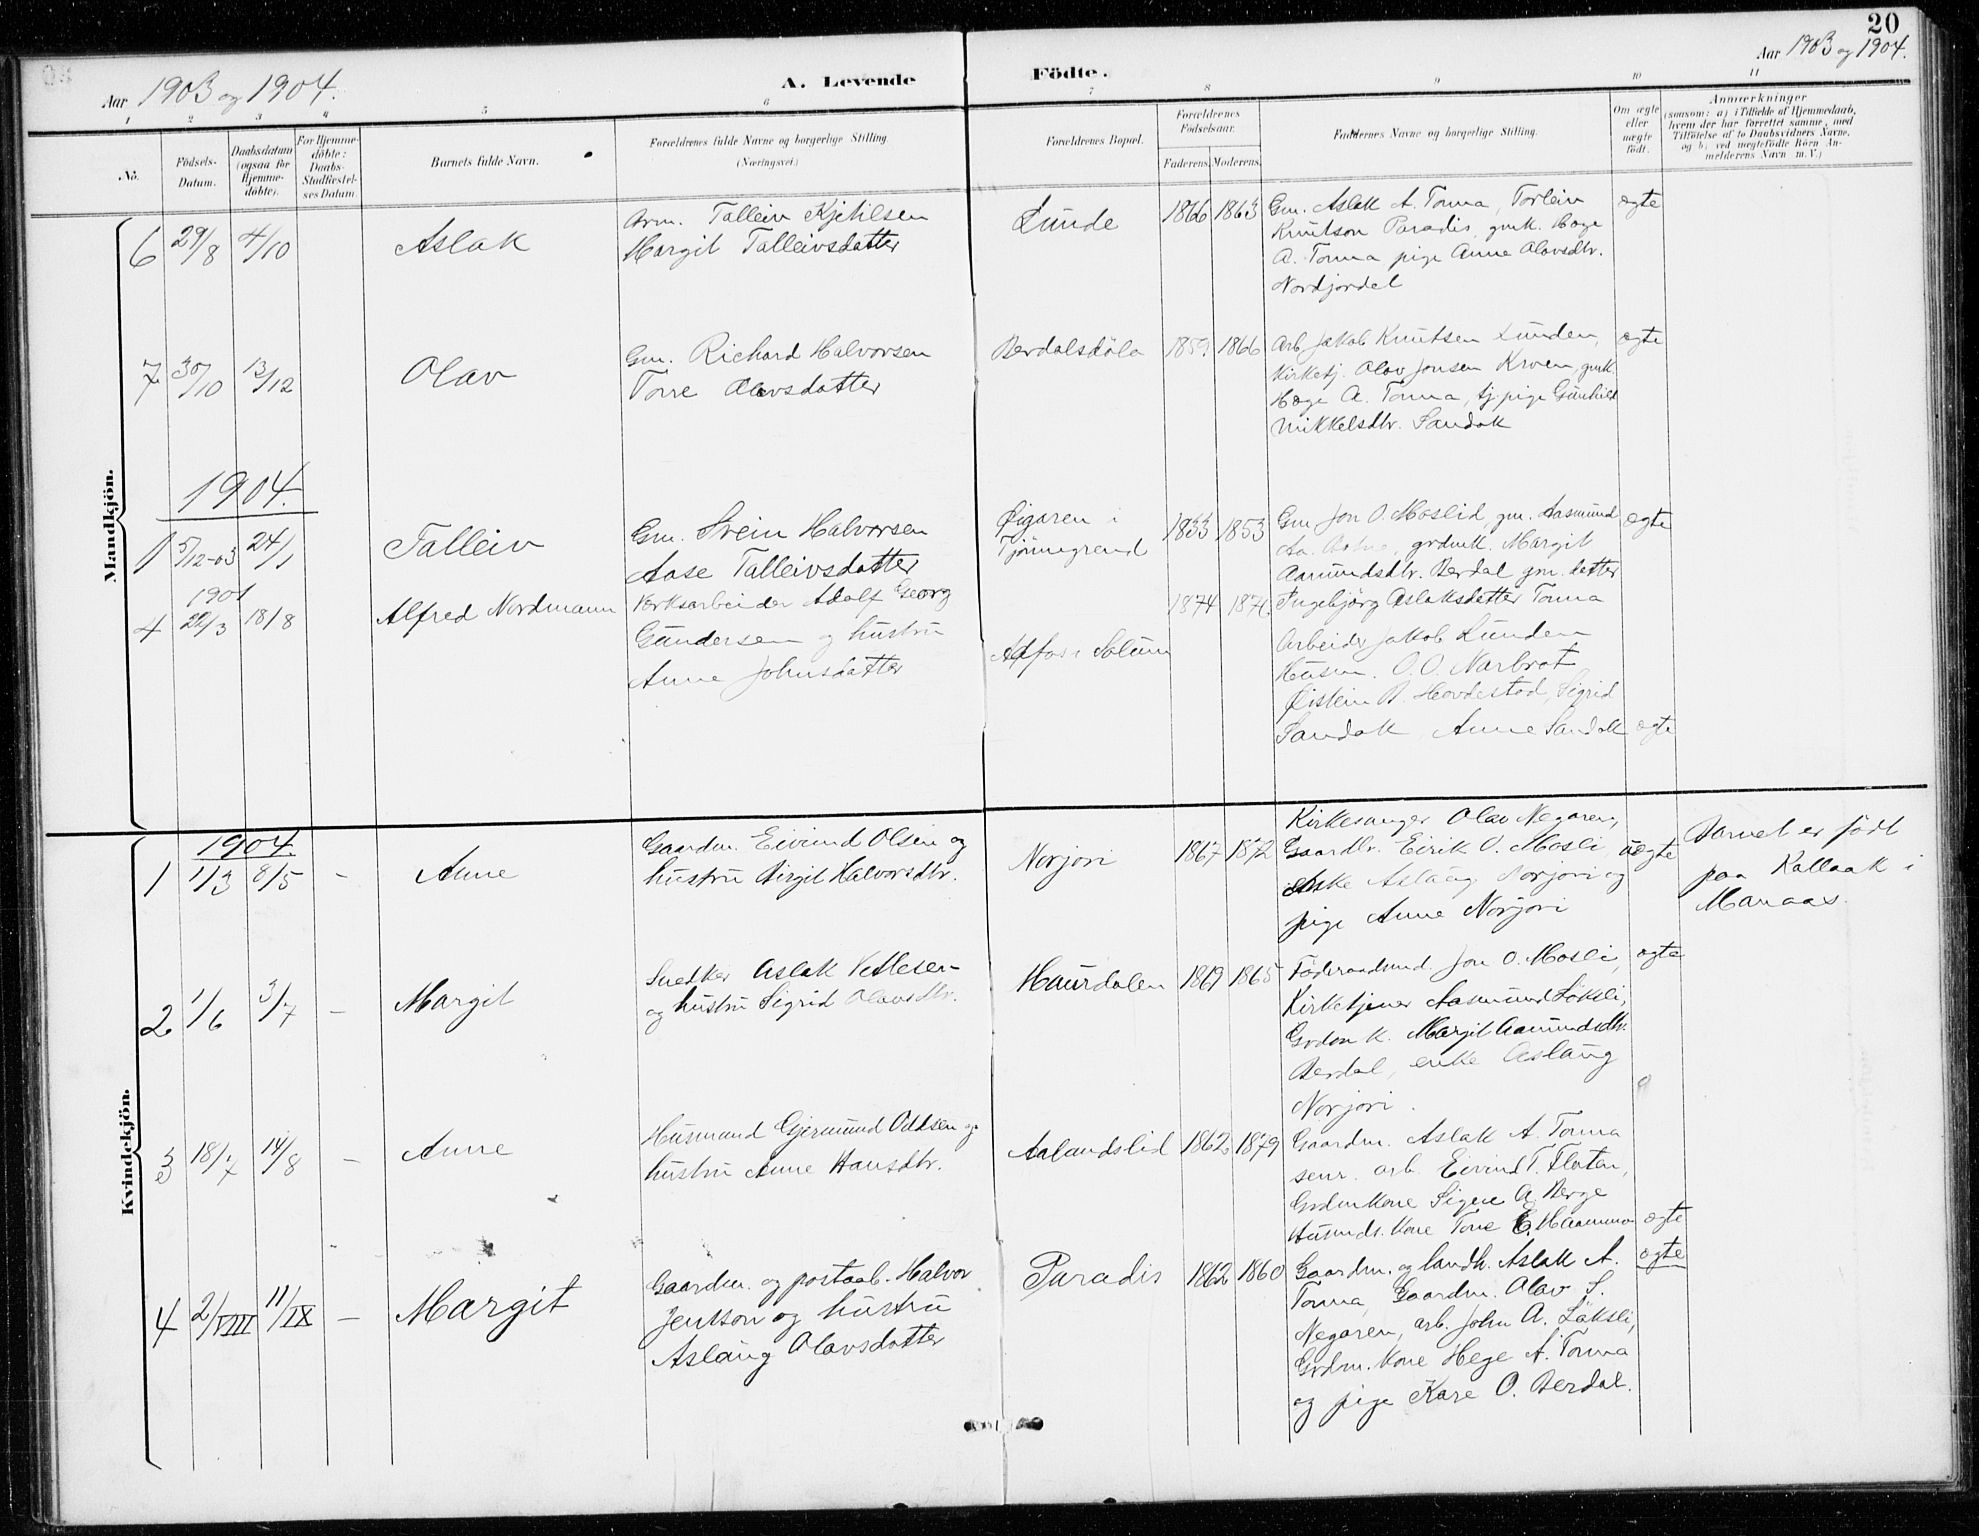 20
Aar 1903 og 1904.
A. Levende Födte.
Aar 1903 og 1904.
1 2 3 4 5 6 7 8 9 10 11
No.
Födsels-Datum.
Daabsdatum (ogsaa for Hjemme-döbte).
For Hjemme-döbte: Daabs-Stadfæstel-ses Datum
Barnets fulde Navn.
Forældrenes fulde Navne og borgerlige Stilling (Næringsvei.)
Forældrenes Bopæl.
Forældrenes Födselsaar.
Faderens. Moderens.
Faddernes Navne og borgerlige Stilling.
Om ægte eller uægte födt.
Anmærkninger
(saasom: a) i Tilfælde af Hjemmedaab, hvem der har forrettet samme, med Tilföielse af to Daabsvidners Navne, og b) ved uægtefödte Börn An-melderens Navn m. V.)
Mandkjön.
6 29/8 4/10 Aslak
Tallein Kjetilsen
Margit Talleivsdatter
Lunde 1866 1863
Gm. Aslak A. Tonna, Torleiv
Knutson Paradis, gmk. Hæge
A. Tonna pige Anne Olavsdtr.
Nordjordet
ægte
7 30/10 13/12 Olav
Gm. Richard Halvorsen
Torre Olavsdatter
Berdalsdöla 1859 1866
Arb. Jakob Knutsen Lunden,
Kirketj. Olav Jonsen Kroen, gmk.
Hæge A. Tonna, tj. pige Gunhild
Mikkelsdtr. Sandok
ægte
1904.
1 5/12-03 24/1 Talleiv
Gm. Svein Halvorsen
Aase Talleivsdatter
Øigaren i
Tjönnegrend
1833 1853
Gm Jon O. Moslid, gm. Aasmund
Aa. grdmk. Margit
Aamundsdtr. Berdal gm. datter
Ingebjörg Aslaksdatter Tonna
ægte
4 22/3 18/8 Alfred Nordmann
Verksarbeider Adolf Georg
Gundersen og hustru
Anne Johnsdatter
Solum
1874
Arbeider Jakob Lunden
Husm. O. O. Narbrot
Øistein B. Hovdestad, Sigrid
Sandok, Anne Sandok
ægte
Kvindekjön.
1904
1 1/3 8/5 - Anne
Gaardm. Eivind Olsen og
hustru Birgit Halvorsdtr.
Norjori 1867 1872
Kirkesanger Olav Negaren,
Gaardbr. Eirik O. Mosli
enke Aslaug Norjori og
pige Anne Norjori
uægte
Barnet er födt
paa Kallaak i
Manaas.
2 1/6 3/7 - Margit
Snedker Aslak Vetlesen
og hustru Sigrid Olavsdtr.
Haurdalen 1865
Föderaadsmd Jon O. Mosli,
Kirketjener Aasmund Löksli,
Grdm k. Margit Aamundsdtr.
Berdal, enke Aslaug
Norjori.
ægte
3 18/7 14/8 - Anne
Husmand Gjermund Oddsen og
hustru Anne Hansdtr.
Aalandslid 1862 1879
Gaardm. Aslak A. Tonna
senr. arb. Eivind T. Flaten,
Grdmkone Signe A. Berge
Husmds. kone Tone E. Haammo
ægte
4 2/VIII 11/IX - Margit
Gaardm. og postaab. Halvor
Jentson og hustru
Aslaug Olavsdatter
Paradis 1862 1860
Gaardm. og landh. Aslak A.
Tonna, Gaardm. Olav S.
Negaren, arb. John A. Löksli,
Grdm. kone Hege A. Tonna
og pige Kare O. Berdal.
ægte